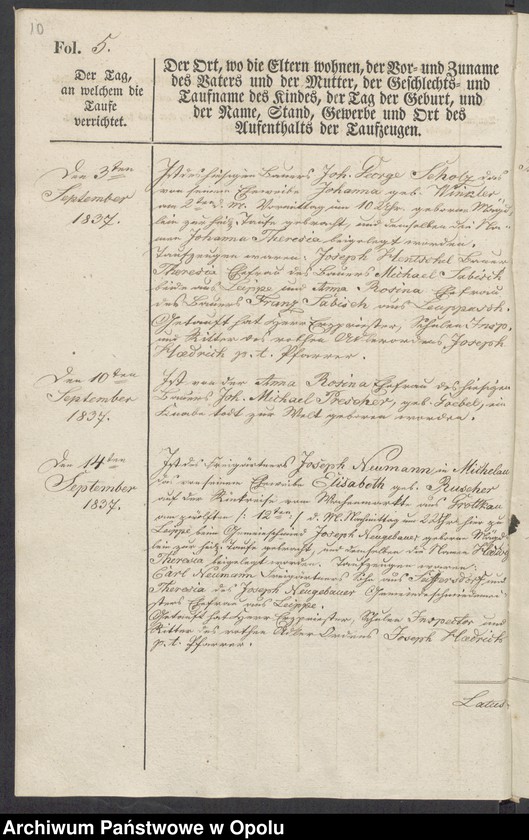 10
Fol. 5.
Der Tag,
an welchem die
Taufe
verrichtet.
Der Ort, wo die Eltern wohnen, der Vor- und Zuname
des Vaters und der Mutter, der Geschlechts- und
Taufname des Kindes, der Tag der Geburt, und
der Name, Stand, Gewerbe und Ort des
Aufenthalts der Taufzeugen.
Den 3ten
September
1837.
Ist des hiesigen Bauers Joh. George Scholz das
von seinem Eheweibe Johanna geb. Winkler
am 2ten d. M. Vormittag um 10 Uhr geboren Mägd
lein zur heil. Taufe gebracht, und demselben die Na
men Johanna Theresia beigelegt worden.
Taufzeugen waren: Joseph Hentschel Bauer
Theresia Ehefrau des Bauers Michael Sabisch
beide aus Leippe und Anna Rosina Ehefrau
des Bauers Franz Sabisch aus
Getauft hat Herr Erzpriester, Schulen Insp.
und Ritter des rothen Adlerordens Joseph
Haedrich p. t. Pfarrer.
Den 10ten
September
1837.
Ist von der Anna Rosina Ehefrau des hiesigen
Bauers Joh. Michael Prescher, geb. Goebel, ein
Knabe todt zur Welt geboren worden.
Den 14ten
September
1837.
Ist des Freigärtners Joseph Neumann in Michelau
das von seinem Eheweibe Elisabeth geb. Ruscher
auf der Rückreise vom Wochenmarkt aus Grottkau
am zwölften /: 12ten :/ d. M. Nachmittag um 2 Uhr hier zu
Leippe, beim Gemeinschmied Joseph Neugebauer geboren Mägd
lein zur heil. Taufe gebracht, und demselben die Namen Hedwig
Theresia beigelegt worden. Taufzeugen waren:
Carl Neumann Freigärtners Sohn aus und
Theresia des Joseph Neugebauer Gemeindeschmiedemei
sters Ehefrau aus Leippe.
Getauft hat Herr Erzpriester, Schulen Inspector und
Ritter des rothen Adler Ordens Joseph Hædrich
p. t. Pfarrer.
Latus
Archiwum Państwowe w Opolu